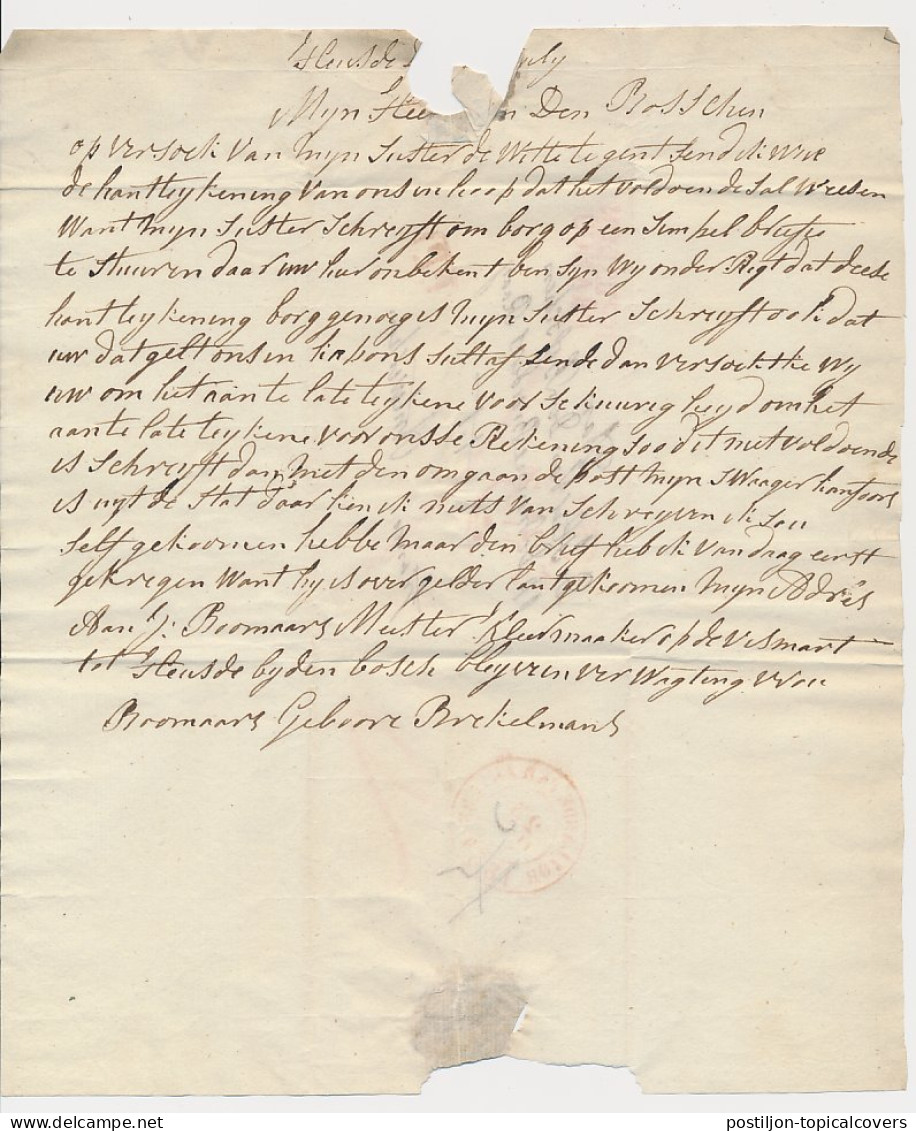 Heusde uly
Myn Hee n Den Bosschen
op versoek van myn suster de Witte te gent send ik uwe
de hantteykening van ons in hoop dat het voldoende sal weesen
want myn suster schreyft om borg op een simpel briefje
te stuuren daar uw hier onbekent ben syn wy onder Regt dat deese
hantteykening borg genoeg is myn suster schreyft ook dat
uw dat gelt ons in kiepons sult af sende dan versoektke wy
uw om het aan te late teykene voor sekuureg heyd om het
aan te late teykene voor onsse Rekening soo dit niet voldoende
is schreyft dan met den omgaande post myn swaager
is uyt de stat daar kien ik niets van schreyven ik sou
self gekoomen hebbe maar den brief heb ik van daag eerst
gekregen want hy is over gelderlant gekoomen myn Adres
Aan J: Boomaars Meester kleermaaker op de vismart
tot Heusde by den bosch bleyve in verwagting vrou
Boomaars Geboore Brekelmans
postiljon-topicalcovers